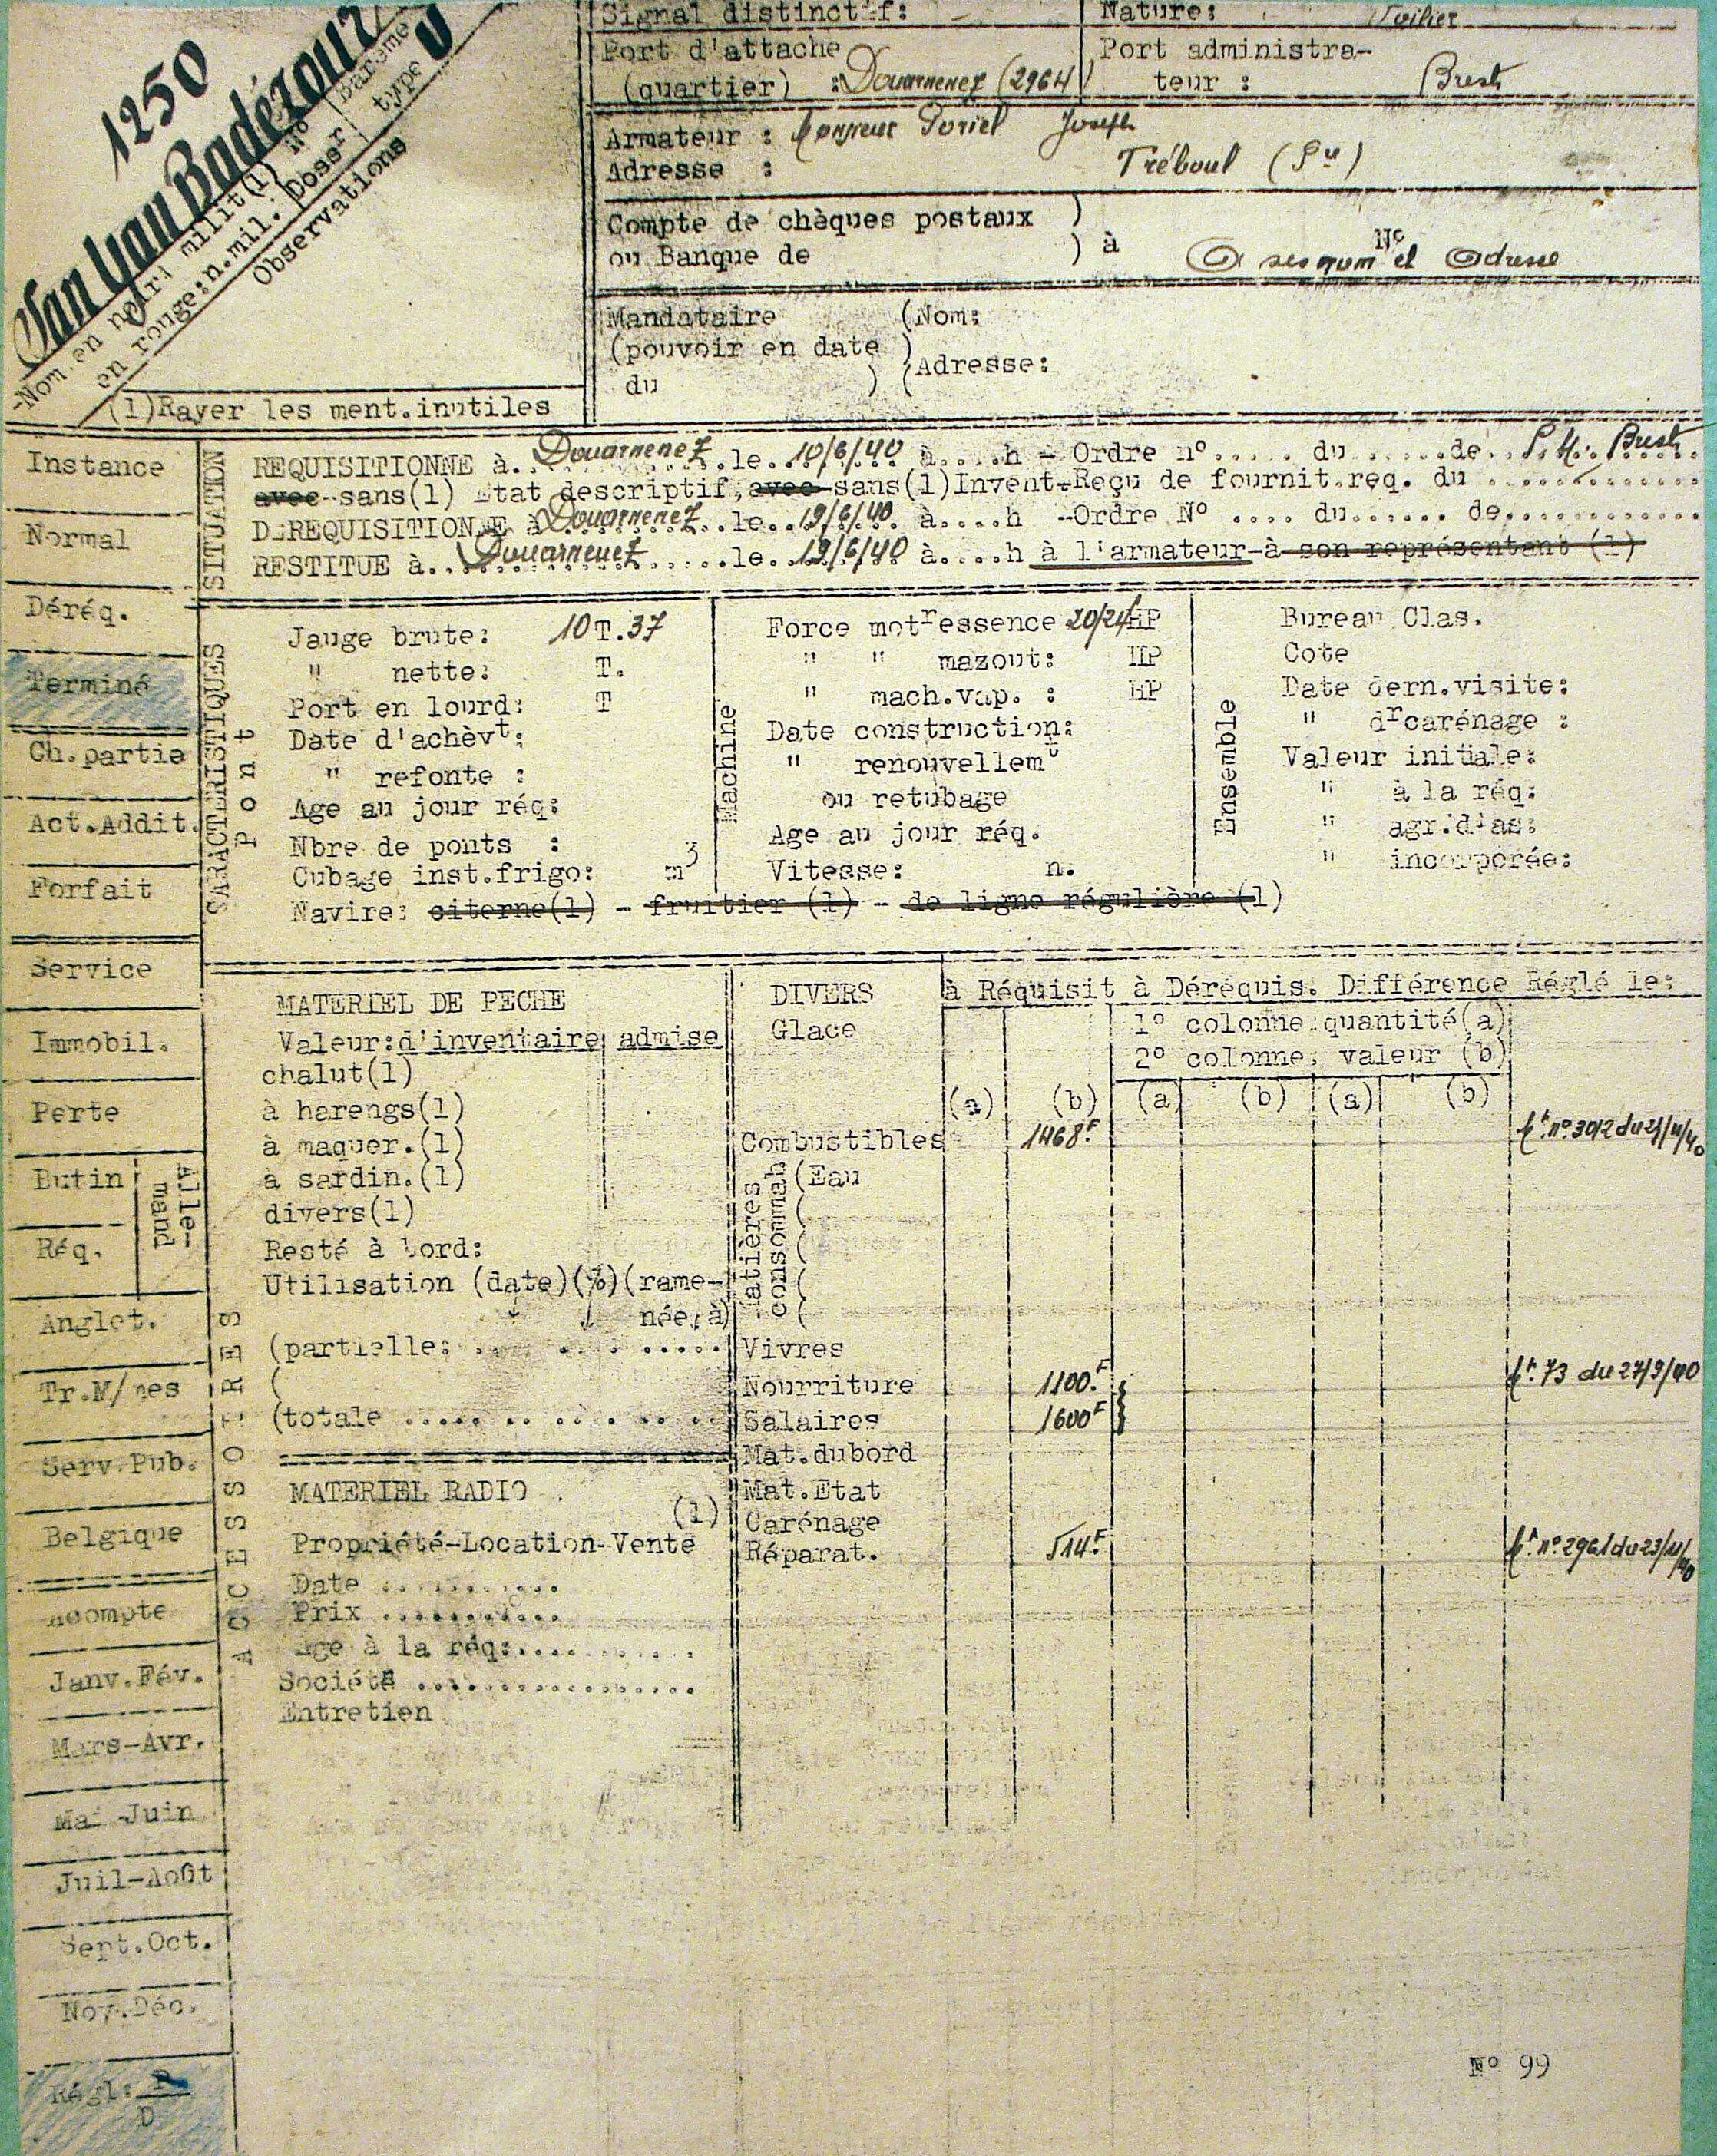 1250
Van Yan Badézour
-Nom.en noir: milit(1) N°
en rouge:n.mil. Dossr
Barème
type
U
Observations
(1)Rayer les ment.inutiles
Signal distinctif:
Nature: Voilier
Port d'attache
(quartier) :Douarnenez (2964)
Port administra-
teur : Brest
Armateur : Monsieur Joseph
Adresse : Tréboul (
Compte de chèques postaux )
ou Banque de ) à
N°
A ses nom et Adresse
Mandataire (Nom:
(pouvoir en date )
du ) (Adresse:
SITUATION
REQUISITIONNE à. Douarnenez .le. 10/6/40 à....h - Ordre n°..... du ......de. Brest
avec-sans(1) Etat descriptif,avec-sans(1)Invent-Reçu de fournit.req. du ............
DEREQUISITIONNE à Douarnenez ..le. 19/6/40 à....h -Ordre N° .... du...... de............
RESTITUE à. Douarnenez .....le. 19/6/40 à....h à l'armateur-à son représentant (1)
Instance
Normal
Déréq.
Terminé
Ch.partie
Act.Addit.
Forfait
Service
Immobil.
Perte
Butin
Réq.
Alle-
mand
Anglet.
Tr.M/mes
Serv.Pub.
Belgique
Acompte
Janv.Fév.
Mars-Avr.
Mai-Juin
Juil-Août
Sept.Oct.
Nov.Déc.
Régl: P
D
SARACTERISTIQUES
Pont
Jauge brute: 10T.37
" nette: T.
Port en lourd: T
Date d'achèvt:
" refonte :
Age au jour réq:
Nbre de ponts :
Cubage inst.frigo: m3
Navire: citerne(1) - fruitier (1) - de ligne régulière (1)
Machine
Force motressence 20/24HP
" " mazout: HP
" mach.vap. : HP
Date construction:
" renouvellemt
ou retubage
Age au jour réq.
Vitesse: n.
Ensemble
Bureau Clas.
Cote
Date dern.visite:
" drcarénage :
Valeur initiale:
" à la réq:
" agr.d'as:
" incorporée:
ACCESSOIRES
MATERIEL DE PECHE
Valeur:d'inventaire admise
chalut(1)
à harengs(1)
à maquer.(1)
à sardin.(1)
divers(1)
Resté à bord:
Utilisation (date)(%)(rame-
née à)
(partielle: .............
(
(totale ..............
MATERIEL RADIO
(1)
Propriété-Location-Vente
Date ...........
Prix ...........
Age à la réq:...........
Société .................
Entretien
DIVERS
à Réquisit à Déréquis. Différence Réglé le:
Glace
1° colonne quantité(a)
2° colonne valeur (b)
(a) (b) (a) (b) (a) (b)
Combustibles 1468.F n° 3012 du 25/11/40
Matières
consommab
(Eau
(
(
(
(
Vivres
Nourriture 1100.F 73 du 27/9/40
Salaires 1600F
Mat.dubord
Mat.Etat
Carénage
Réparat. 514.F n° 2961 du 23/11/40
N° 99